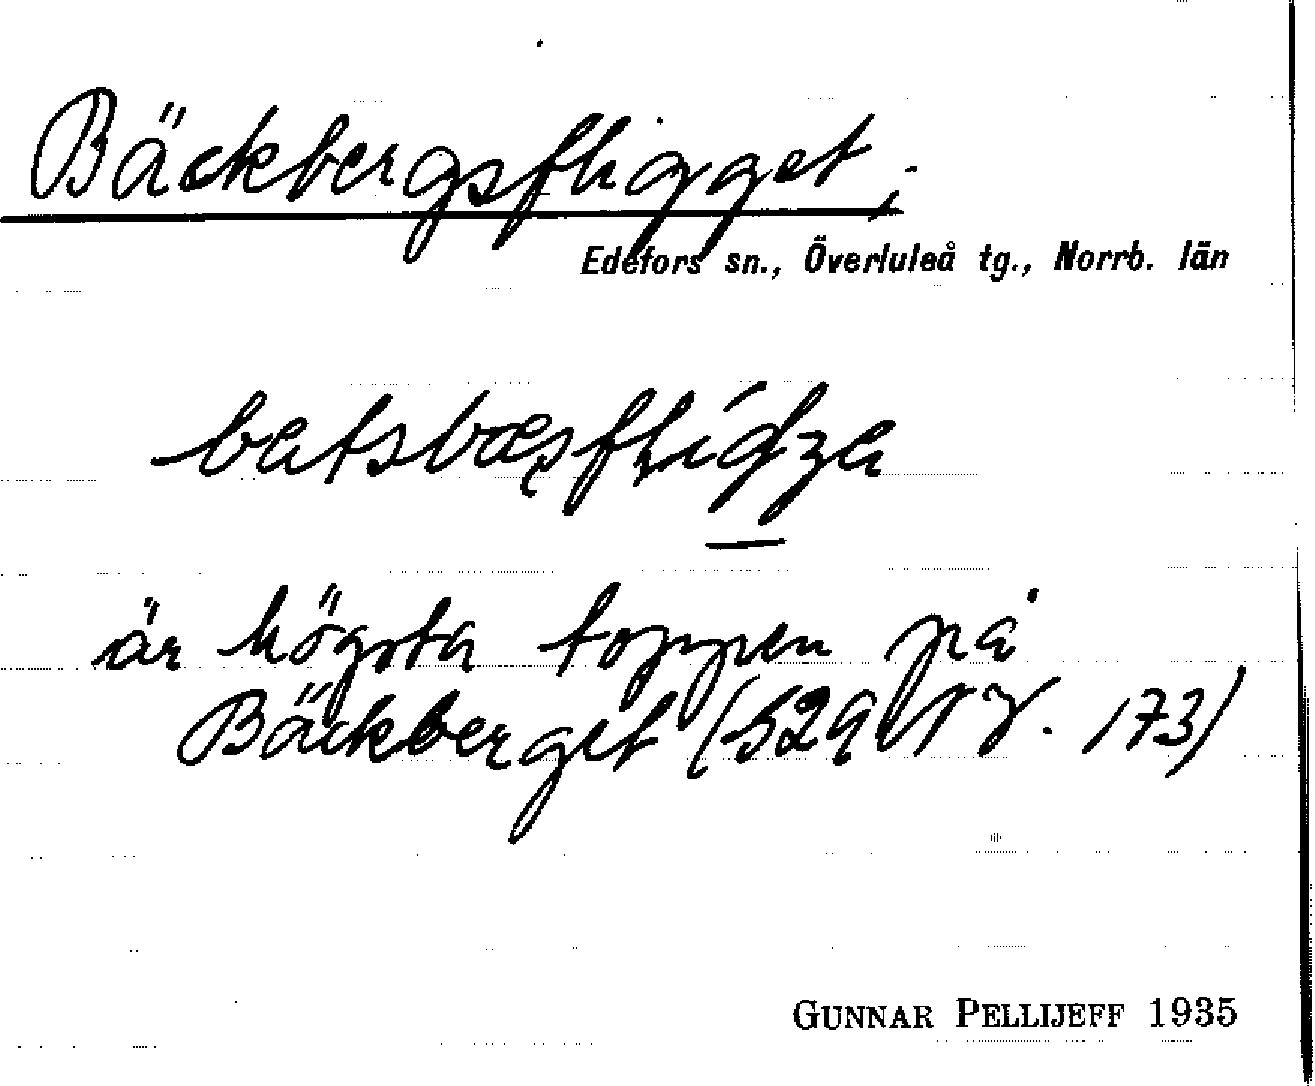 Bäckbergsfligget;
Edefors sn., Överluleå tg., Norrb. län
är högsta toppen på
Bäckberget (529 173)
GUNNAR PELLIJEFF 1935